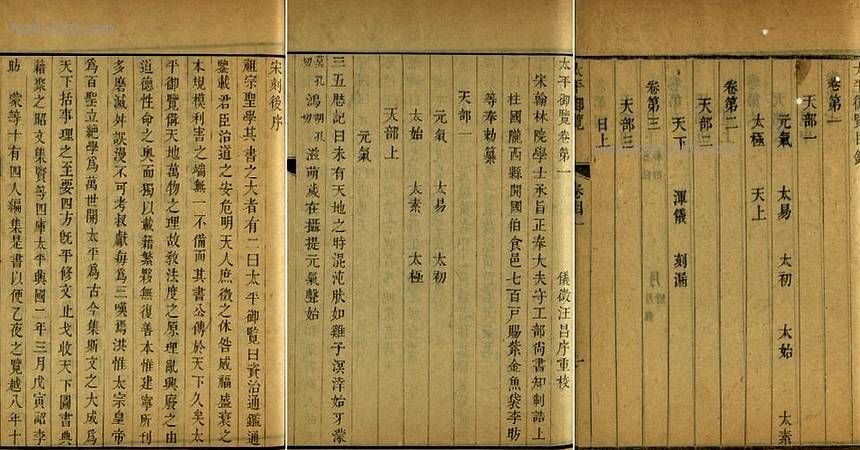 太平御覽目錄
卷第一
天部一
元氣 太易 太初 太始 太素
太極 天上
卷第二
天部二
天下 渾儀 刻漏
卷第三
天部三
日上
太平御覽 卷目 一
太平御覽卷第一 儀徵汪昌序重校
宋翰林院學士承旨正奉大夫守工部尚書知制誥上
柱國隴西縣開國伯食邑七百戸賜紫金魚袋李昉
等奉勅纂
天部一
元氣 太易 太初
太始 太素 太極
天部上
元氣
三五厯記曰未有天地之時混沌狀如雞子溟涬始牙濛
莫孔切鴻胡孔切滋萌歲在攝提元氣肇始
宋刻後序
祖宗聖學其書之大者有二曰太平御覽曰資治通鑑通
鑒載君臣治道之安危明天人庶徵之休咎威福盛衰之
本規模利害之端無一不備而其書公傳於天下久矣太
平御覽備天地萬物之理政教法度之原理亂興廢之由
道德性命之奧而獨以載籍繁夥無復善本惟建寧所刊
多磨滅舛誤漫不可考叔獻每爲三嘆焉洪惟太宗皇帝
爲百聖立絕學爲萬世開太平爲古今集斯文之大成爲
天下括事理之至要四方旣平修文止戈收天下圖書典
籍聚之昭文集賢等四庫太平興國二年三月戊寅詔李
昉 蒙等十有四人編集是書以便乙夜之覽越八年十